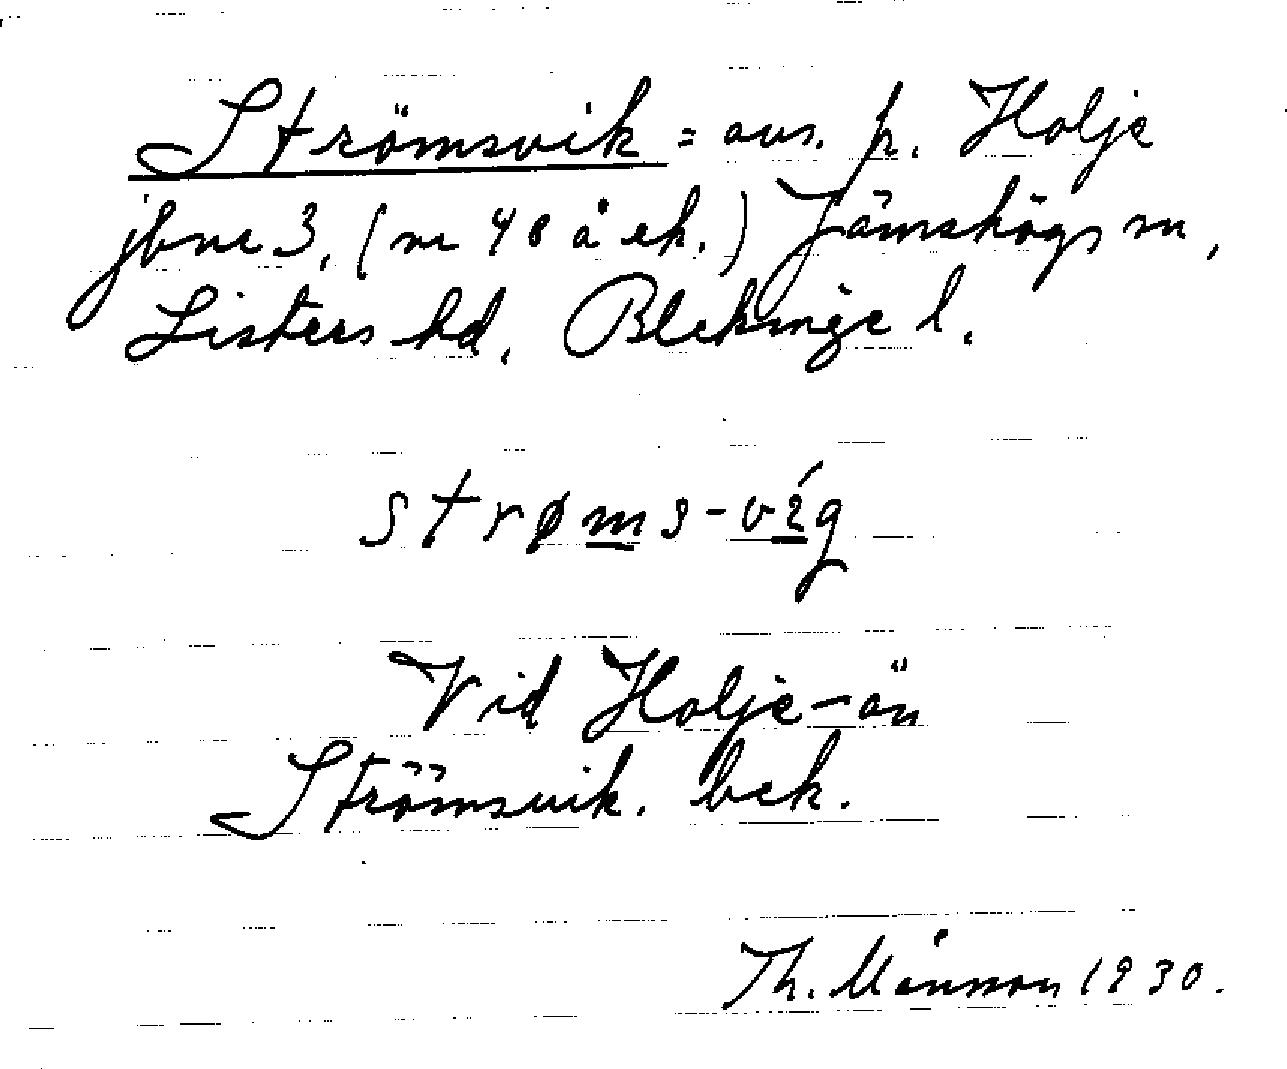 Strömsvik = avs. p. Holje
jbnr 3, (nr 48 å ek.) Jämshögs sn,
Listers hd, Blekinge l.
strøms-víg
Vid Holje-ån
Strömsvik. bek.
Th. Månsson 1930.